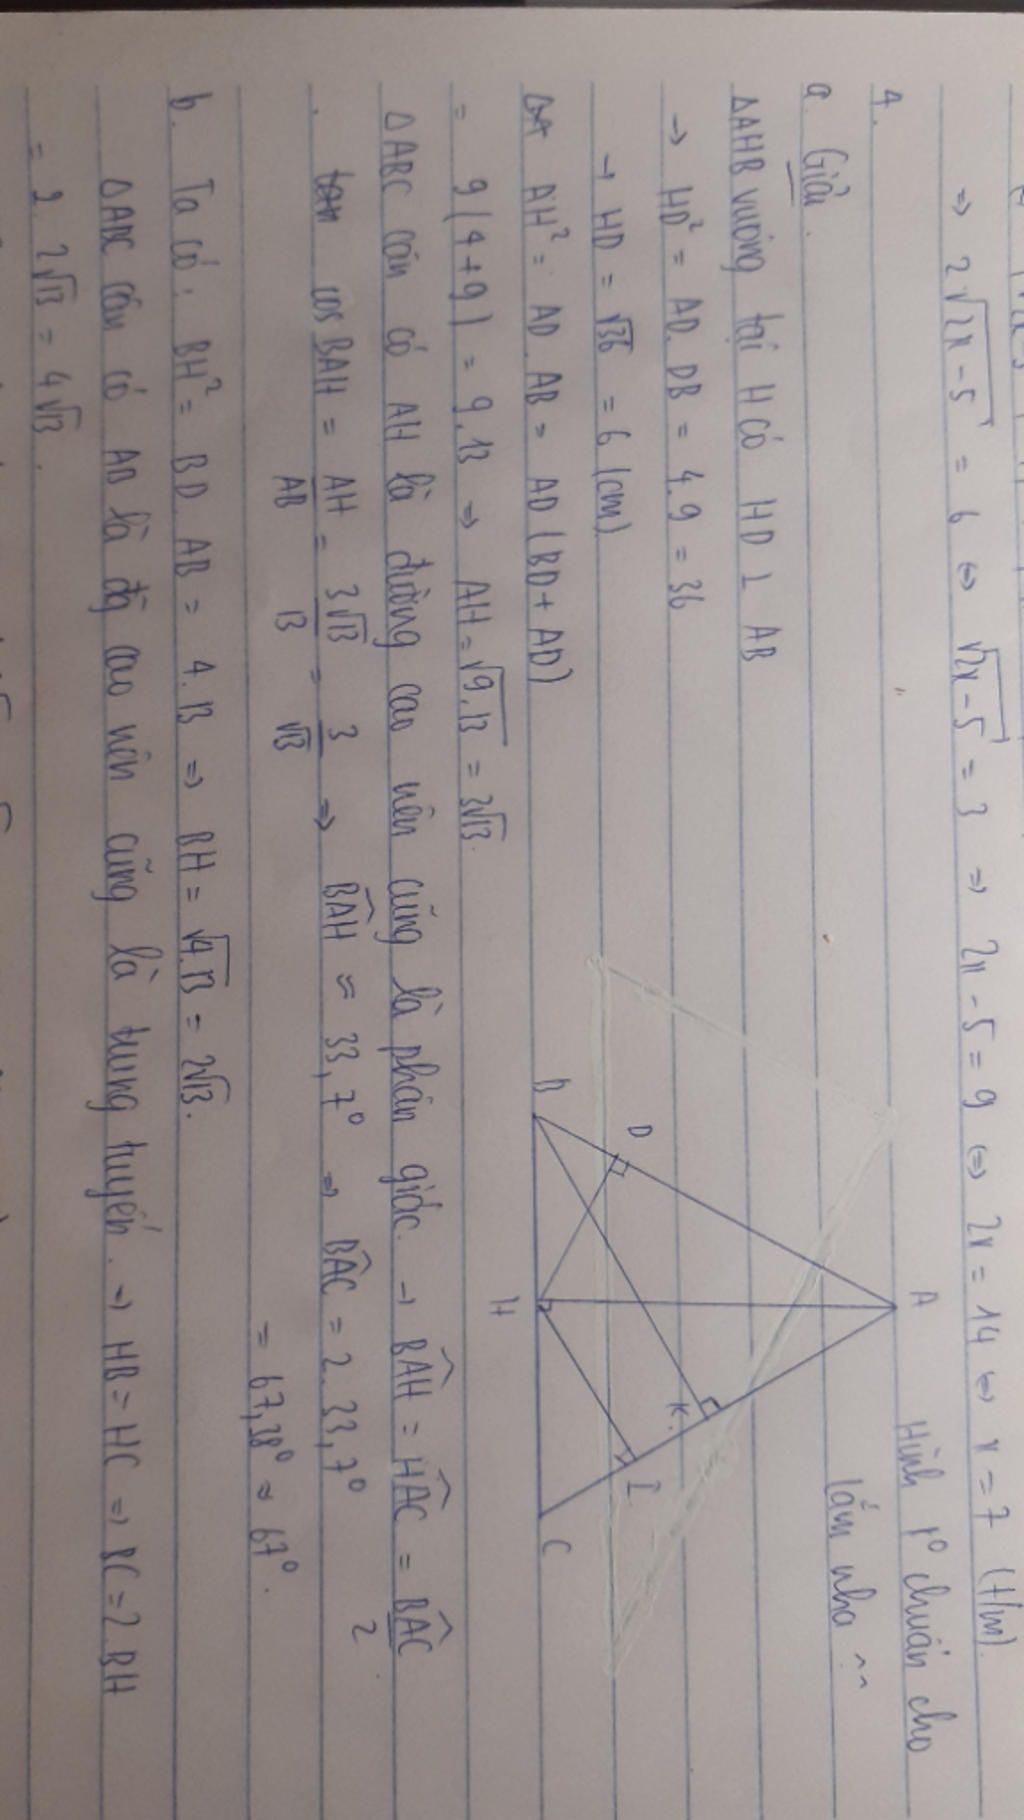 => 2√2x-5 = 6 <=> √2x-5 = 3 => 2x-5 = 9 <=> 2x = 14 <=> x = 7 (t/m)
4.
Hình k° chuẩn cho
lắm nha ^^
a. Giải.
ΔAHB vuông tại H có HD ⊥ AB
→ HD² = AD. DB = 4.9 = 36
→ HD = √36 = 6 (cm)
AH² = AD. AB = AD (BD + AD)
= 9 (4+9) = 9.13 => AH = √9.13 = 3√13.
ΔABC cân có AH là đường cao nên cũng là phân giác. → BAH = HAC = BAC/2.
cos BAH = AH/AB = 3√13/13 = 3/√13 => BAH ≈ 33,7° => BAC = 2. 33,7°
= 67,38° ≈ 67°.
b. Ta có: BH² = BD. AB = 4.13 => BH = √4.13 = 2√13.
ΔABC cân có AB là đg cao nên cũng là trung tuyến. => HB = HC => BC = 2. BH
= 2. 2√13 = 4√13.
A
B
D
H
K
I
C